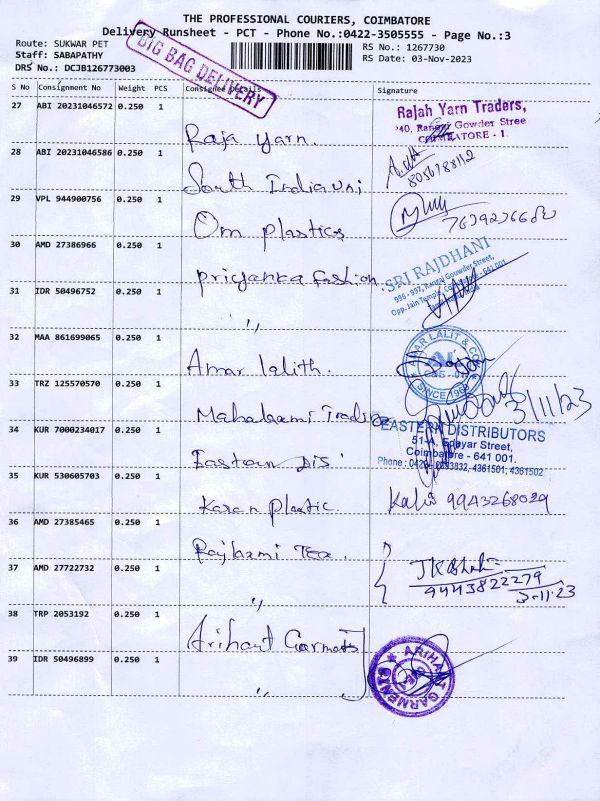 THE PROFESSIONAL COURIERS, COIMBATORE
Delivery Runsheet - PCT - Phone No.:0422-3505555 - Page No.:3
Route: SUKWAR PET
RS No.: 1267730
Staff: SABAPATHY
RS Date: 03-Nov-2023
DRS No.: DCJB126773003
BIG BAG DELIVERY
S No Consignment No Weight PCS Consignee Details Signature
27 ABI 20231046572 0.250 1
Raja Yarn.
Rajah Yarn Traders,
Gowder Stree
COIMBATORE - 1.
28 ABI 20231046586 0.250 1
South India
8056788112
29 VPL 944900756 0.250 1
Om plastics
30 AMD 27386966 0.250 1
priyanka fashion.
SRI RAJDHANI
995 - 997, Rangai Gouwder Street,
31 IDR 50496752 0.250 1
"
32 MAA 861699065 1
0.250
Amar lalith.
AMAR LALIT & CO
SINCE
33 TRZ 125570570 0.250 1
Mahalaxmi Trading
3/11/23
34 KUR 7000234017 0.250 1
Eastern Dis.
EASTERN DISTRIBUTORS
51-A, Edayar Street,
Coimbatore - 641 001.
4361501, 4361502
35 KUR 530605703 0.250 1
Karan plastic.
9943268029
36 AMD 27385465 0.250 1
Rajlaxmi Tex.
37 AMD 27722732 0.250 1
"
9443822279
3-11-23
38 TRP 2053192 0.250 1
Arihant Garments
39 IDR 50496899 0.250 1
"
ARIHANT GARMENTS